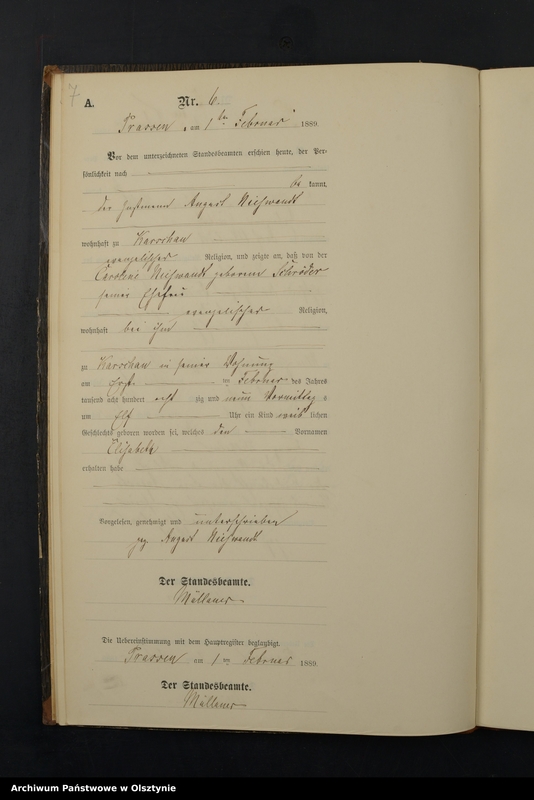 7
A.
Nr. 6.
Prassen, am 1ten Februar 1889.
Vor dem unterzeichneten Standesbeamten erschien heute, der Per-
sönlichkeit nach
be kannt,
der Instmann August
wohnhaft zu Karschau
evangelischer Religion, und zeigte an, daß von der
Caroline geborenen Schröder
seiner Ehefrau
evangelischer Religion,
wohnhaft bei ihm
zu Karschau in seiner Wohnung
am ersten Februar des Jahres
tausend acht hundert acht zig und neun Vormittag s
um elf Uhr ein Kind weib lichen
Geschlechts geboren worden sei, welches den Vornamen
Elisabeth
erhalten habe
Vorgelesen, genehmigt und unterschrieben
gez. August
Der Standesbeamte.
Die Uebereinstimmung mit dem Hauptregister beglaubigt.
Prassen am 1ten Februar 1889.
Der Standesbeamte.
Archiwum Państwowe w Olsztynie